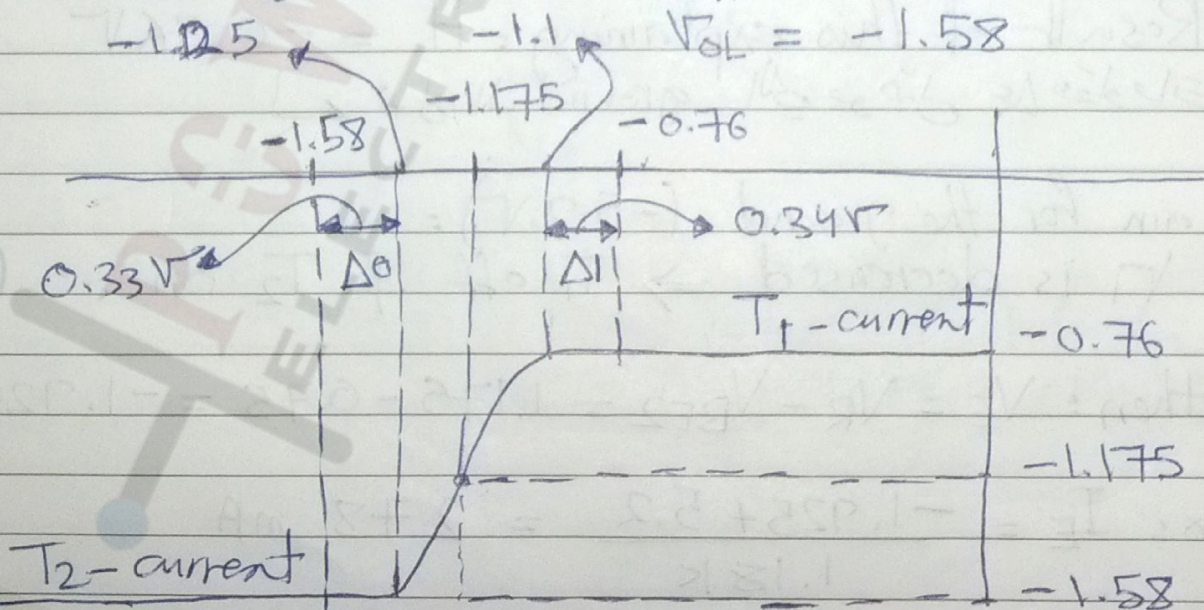 -1.25
-1.1
VOL = -1.58
-1.175
-1.58
-0.76
0.34V
0.33V
Δ0
Δ1
T1-current
-0.76
-1.175
T2-current
-1.58